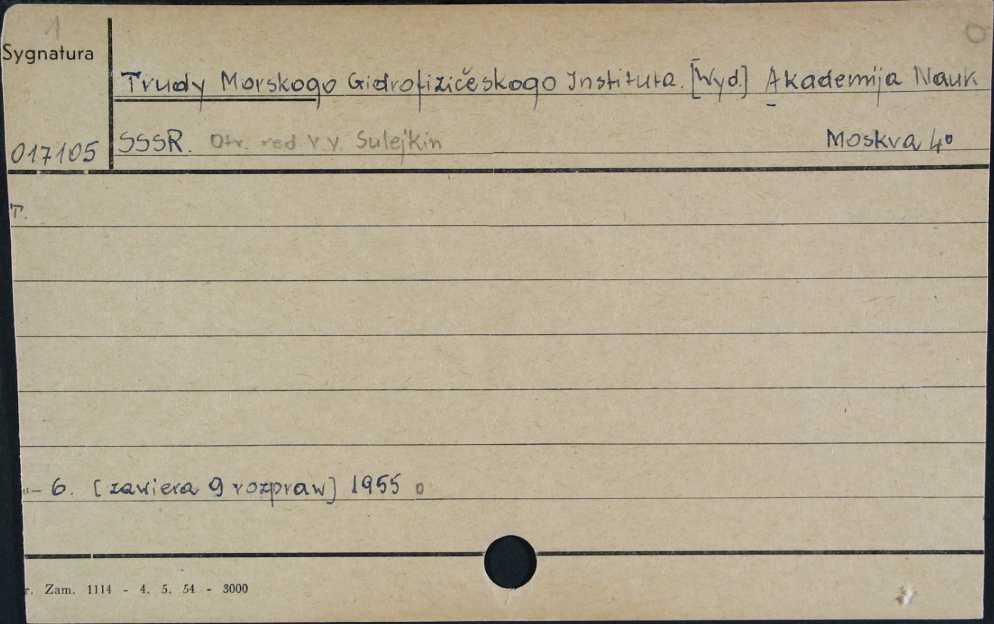 1
Sygnatura
Trudy Morskogo Gidrofizičeskogo Instituta. [Wyd.] Akademija Nauk
017105 SSSR. Otv. red V.V. Sulejkin Moskva 4°
T.
"– 6. [zawiera 9 rozpraw] 1955 o
r. Zam. 1114 - 4. 5. 54 - 3000